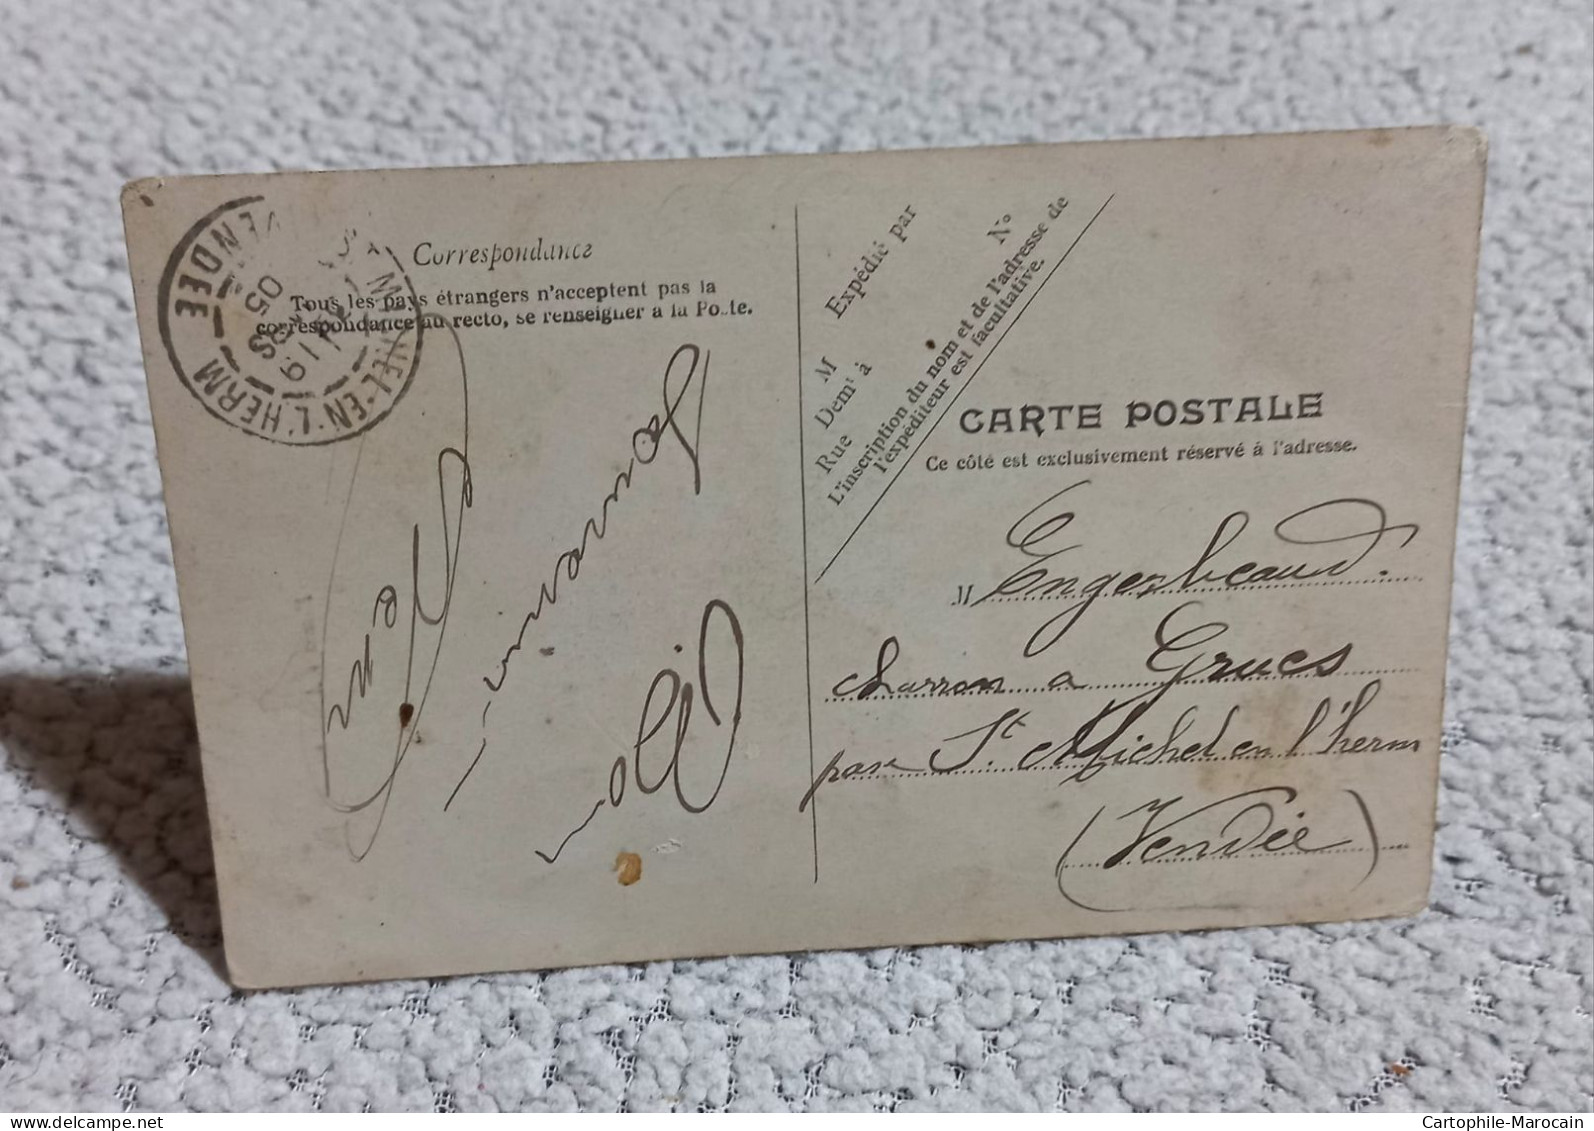 Correspondance
Tous les pays étrangers n'acceptent pas la
correspondance au recto, se renseigner à la Poste.
MICHEL-EN-L'HERM
VENDÉE
19
05
Expédié par
M
Demt à
Rue
N°
L'inscription du nom et de l'adresse de
l'expéditeur est facultative.
CARTE POSTALE
Ce côté est exclusivement réservé à l'adresse.
M Engerbeaud.
charron a Grues
par St Michel en l'herm
(Vendée)
Cartophile-Marocain